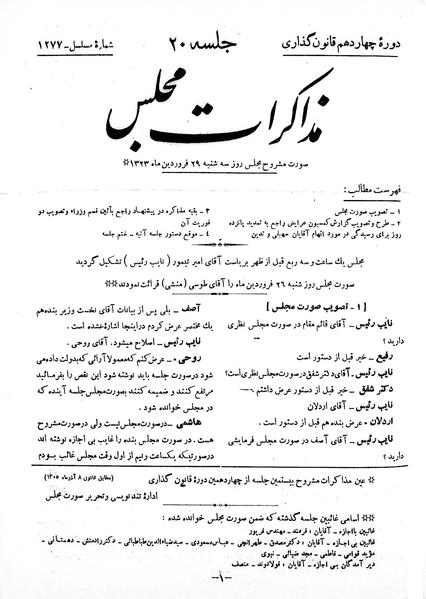 دورهٔ چهاردهم قانون گذاری
جلسه ۲۰
شمارهٔ مسلسل - ۱۲۷۷
مذاکرات مجلس
صورت مشروح مجلس روز سه شنبه ۲۹ فروردین ماه ۱۳۲۳ ※
فهرست مطالب :
۱ - تصویب صورت مجلس
۲ - طرح و تصویب گزارش کمسیون عرایض راجع به تمدید پانزده
روز برای رسیدگی در مورد اتهام آقایان سهیلی و تدین
۳ - بقیه مذاکره در پیشنهاد راجع بآئین قسم وزراء و تصویب دو
فوریت آن
۴ - موقع دستور جلسه آتیه - ختم جلسه
مجلس یك ساعت و سه ربع قبل از ظهر بریاست آقای امیر تیمور ( نایب رئیس ) تشکیل گردید
صورت مجلس روز شنبه ۲۶ فروردین ماه را آقای طوسی (منشی) قرائت نمودند※※
[ ۱ - تصویب صورت مجلس ]
نایب رئیس - آقای قائم مقام در صورت مجلس نظری
دارید ؟
رفیع - خیر قبل از دستور است
نایب رئیس - آقای دکتر شفق در صورت مجلس نظری است؟
دکتر شفق - خیر قبل از دستور عرض داشتم
نایب رئیس - آقای اردلان
اردلان - عرض بنده هم قبل از دستور است .
نایب رئیس - آقای آصف در صورت مجلس فرمایشی
دارید ؟
آصف - بلی پس از بیانات آقای نخست وزیر بنده هم
یك مختصر عرض کردم در اینجا اشاره نشده است .
نایب رئیس - اصلاح میشود. آقای روحی .
روحی - عرض کنم که معمولا آرائی که بدولت داده می
شود در صورت جلسه باید نوشته شود این نقص را بفرمائید
مرتفع کنند و ضمیمه کنند بصورت مجلس جلسه آینده که
در مجلس خوانده شود .
هاشمی - در صورت مجلس نیست ولی در صورت مشروح
هست . در صورت مجلس بنده را غایب بی اجازه نوشته اند
در صورتیکه یکساعت و نیم از اول وقت مجلس غالب بودم
※※ عین مذاکرات مشروح بیستمین جلسه از چهاردهمین دورهٔ قانون گذاری
(مطابق قانون ۸ آذر ماه ۱۳۰۵)
ادارهٔ تندنویسی و تحریر صورت مجلس
※※ اسامی غائبین جلسه گذشته که ضمن صورت مجلس خوانده شده :
غائبین با اجازه - آقایان : فرمند - مهندس فریور
غائبین بی اجازه - آقایان : دکتر مصدق - ظهر انچی - عباس مسعودی - سید ضیاء الدین طباطبائی - دکتر رادمنش - دهستانی -
مؤید قوامی - فاطمی - مجد ضیائی - نبوی
دیر آمدگان بی اجازه - آقایان : فولادوند - منصف
-۱-